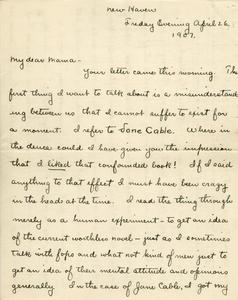 New Haven
Friday Evening April 26
1907.
My dear Mama -
Your letter came this morning. The
first thing I want to talk about is a misunderstand
ing between us that I cannot suffer to exist for
a moment. I refer to Jane Cable. Where in
the deuce could I have given you the impression
that I liked that confounded book! If I said
anything to that effect I must have been crazy
in the head at the time. I read the thing through
merely as a human experiment - to get an idea
of the current worthless novel - just as I sometimes
talk with fops and what not kind of men just to
get an idea of their mental attitude and opinions
generally. In the case of Jane Cable, I got my